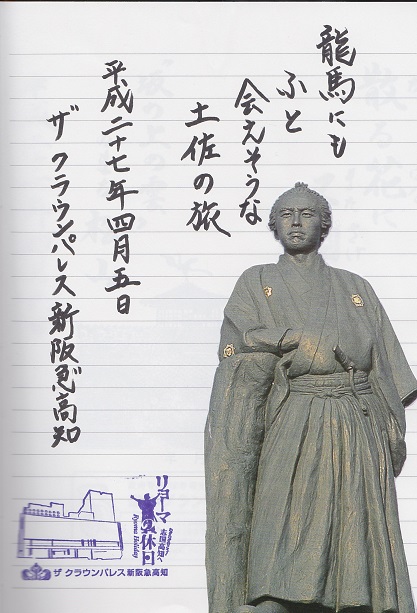 龍馬にも
ふと
会えそうな
土佐の旅
平成二十七年四月五日
ザ クラウンパレス新阪急高知
リョーマの休日
志国高知へ
Ryoma Holiday
ザ クラウンパレス新阪急高知